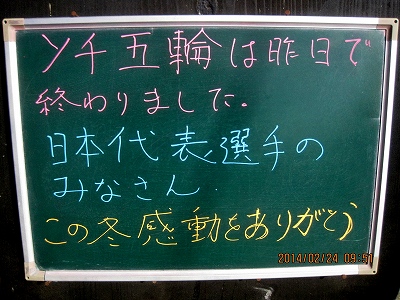 ソチ五輪は昨日で
終わりました。
日本代表選手の
みなさん.
この冬感動をありがとう
2014/02/24 09:51